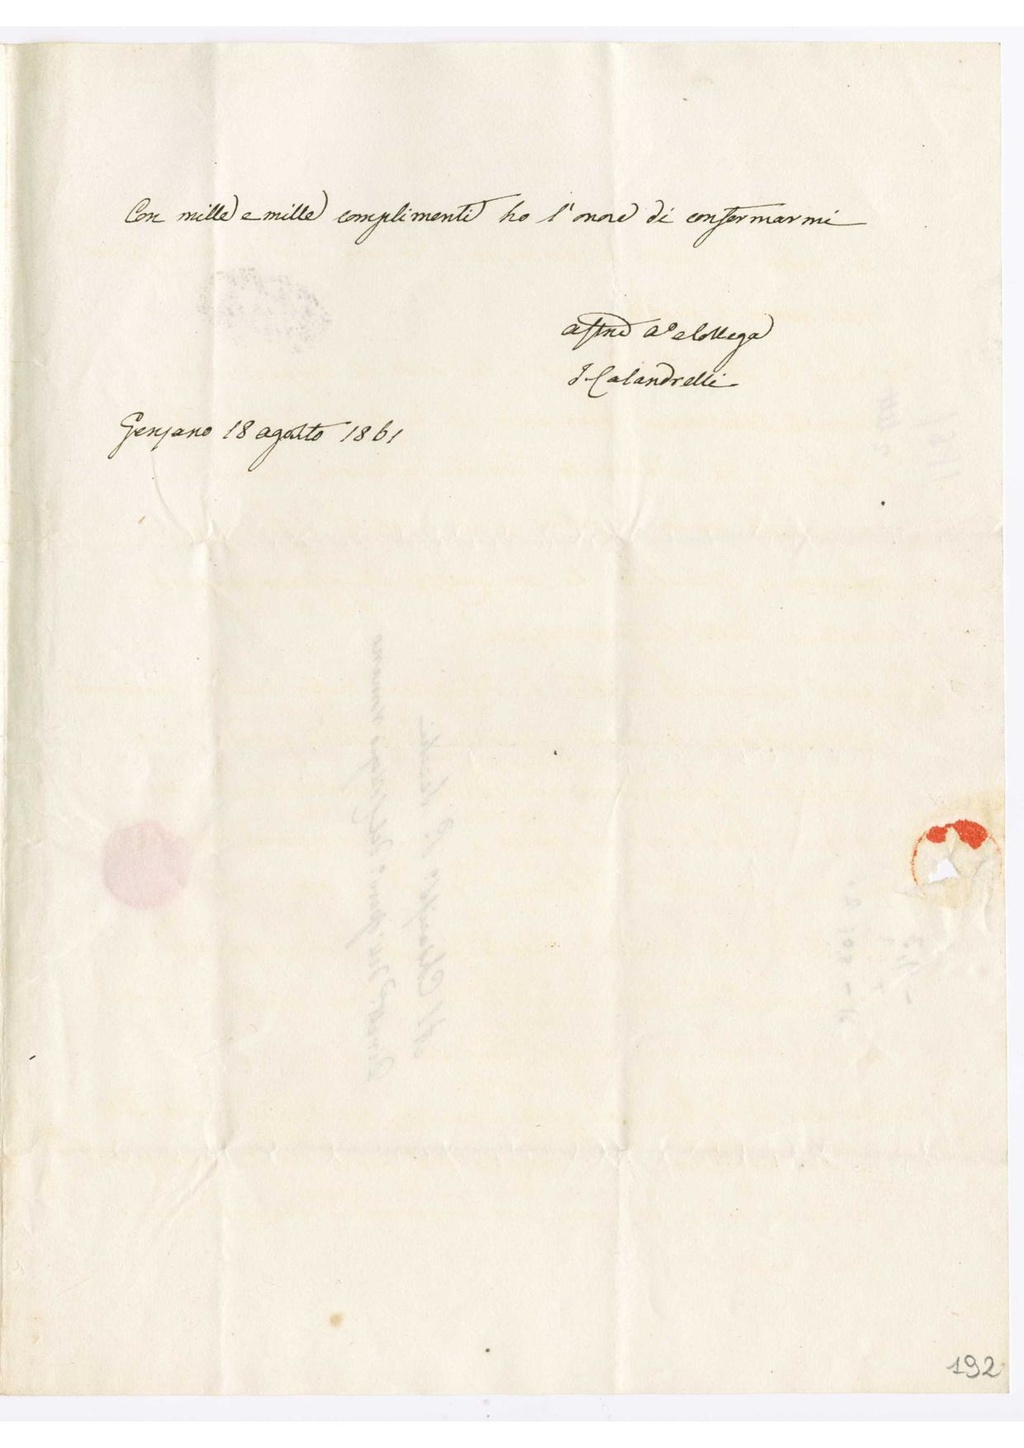 Con mille e mille complimenti ho l'onore di confermarmi
affmo a⁰ e collega
I Calandrelli
Genzano 18 agosto 1861
192